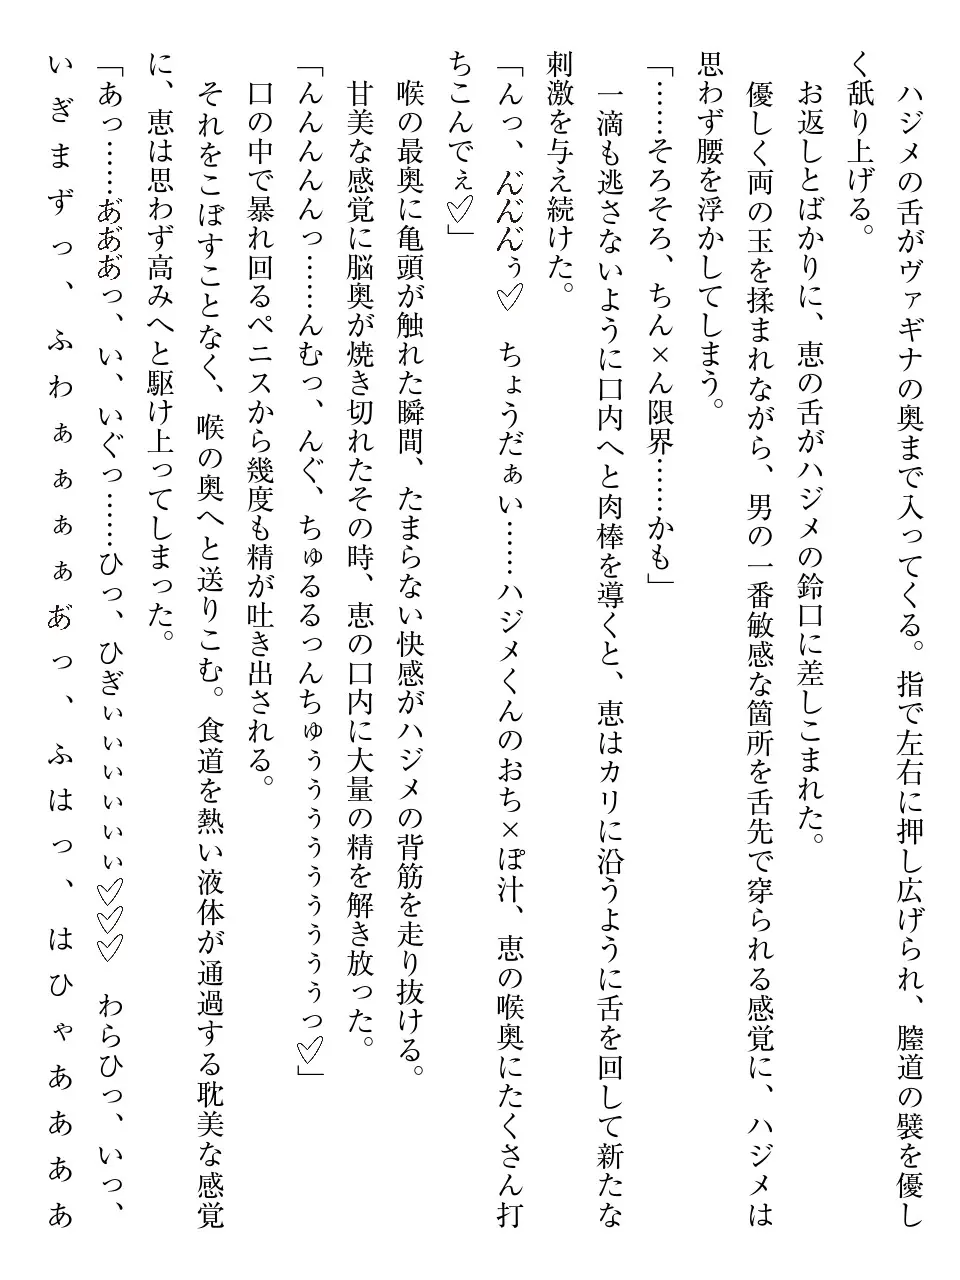 ハジメの舌がヴァギナの奥まで入ってくる。指で左右に押し広げられ、膣道の襞を優し
く舐り上げる。
お返しとばかりに、恵の舌がハジメの鈴口に差しこまれた。
優しく両の玉を揉まれながら、男の一番敏感な箇所を舌先で穿られる感覚に、ハジメは
思わず腰を浮かしてしまう。
「……そろそろ、ちん×ん限界……かも」
一滴も逃さないように口内へと肉棒を導くと、恵はカリに沿うように舌を回して新たな
刺激を与え続けた。
「んっ、ん゛ん゛ん゛ぅ♡　ちょうだぁい……ハジメくんのおち×ぽ汁、恵の喉奥にたくさん打
ちこんでぇ♡」
喉の最奥に亀頭が触れた瞬間、たまらない快感がハジメの背筋を走り抜ける。
甘美な感覚に脳奥が焼き切れたその時、恵の口内に大量の精を解き放った。
「んんんんっ……んむっ、んぐ、ちゅるるっんちゅぅぅぅぅぅぅぅぅっ♡」
口の中で暴れ回るペニスから幾度も精が吐き出される。
それをこぼすことなく、喉の奥へと送りこむ。食道を熱い液体が通過する耽美な感覚
に、恵は思わず高みへと駆け上ってしまった。
「あっ……あ゛あ゛あ゛っ、い、いぐっ……ひっ、ひぎぃぃぃぃぃぃ♡♡♡　わらひっ、いっ、
いぎまずっ、ふわぁぁぁぁあ゛っ、ふはっ、はひゃああああ